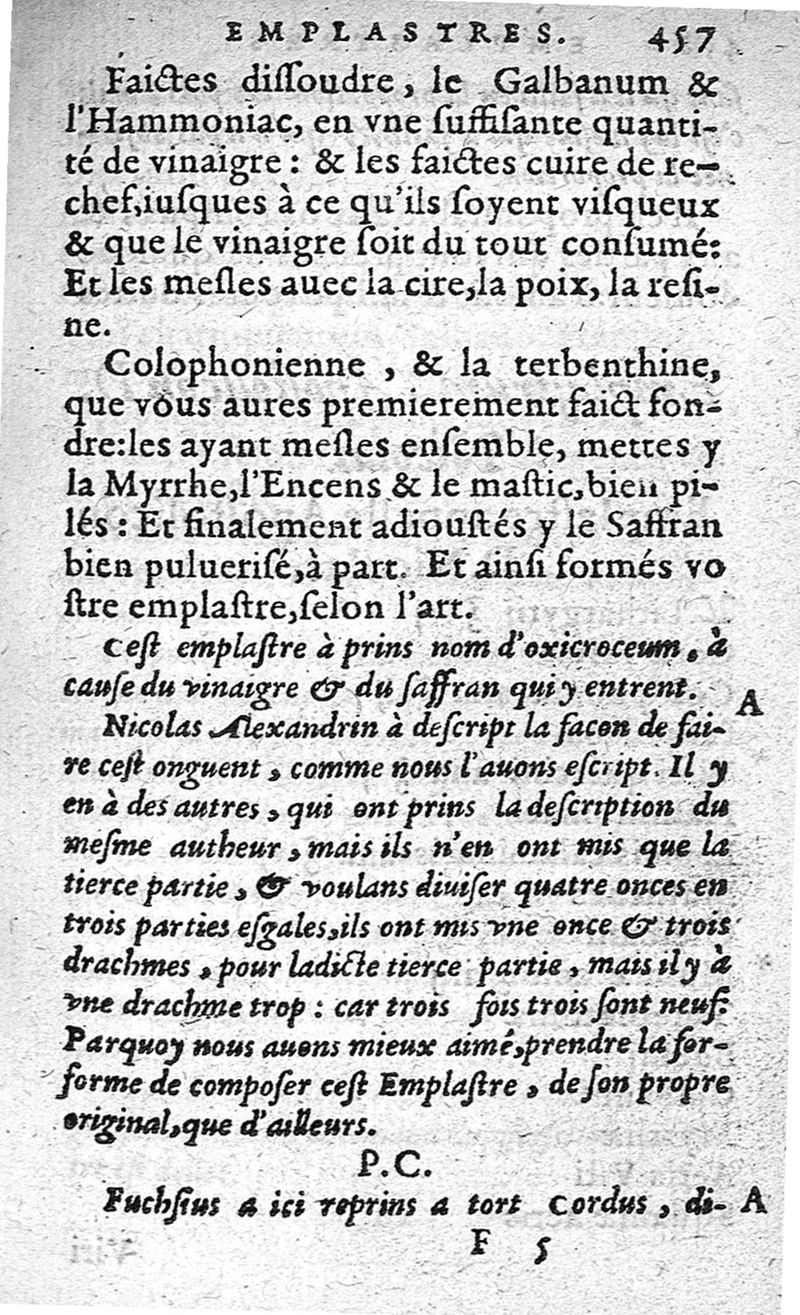 EMPLASTRES. 457
Faictes diſſoudre, le Galbanum &
l'Hammoniac, en vne ſuffiſante quanti-
té de vinaigre : & les faictes cuire de re-
chef,iuſques à ce qu'ils ſoyent viſqueux
& que le vinaigre ſoit du tout conſumé:
Et les meſles auec la cire,la poix, la reſi-
ne.
Colophonienne , & la terbenthine,
que vous aures premierement faict fon-
dre:les ayant meſles enſemble, mettes y
la Myrrhe,l'Encens & le maſtic,bien pi-
lés : Et finalement adiouſtés y le Saffran
bien pulueriſé,à part. Et ainſi formés vo
ſtre emplaſtre,ſelon l'art.
Ceſt emplaſtre à prins nom d'oxicroceum, à
cauſe du vinaigre & du ſaffran qui y entrent.
A
Nicolas Alexandrin à deſcript la facon de fai-
re ceſt onguent , comme nous l'auons eſcript. Il y
en à des autres , qui ont prins la deſcription du
meſme autheur , mais ils n'en ont mis que la
tierce partie , & voulans diuiſer quatre onces en
trois parties eſgales,ils ont mis vne once & trois
drachmes , pour ladicte tierce partie , mais il y à
vne drachme trop : car trois fois trois ſont neuf:
Parquoy nous auons mieux aimé,prendre la for-
forme de compoſer ceſt Emplaſtre , de ſon propre
original,que d'ailleurs.
P.C.
Fuchſius a ici reprins a tort Cordus , di- A
F 5